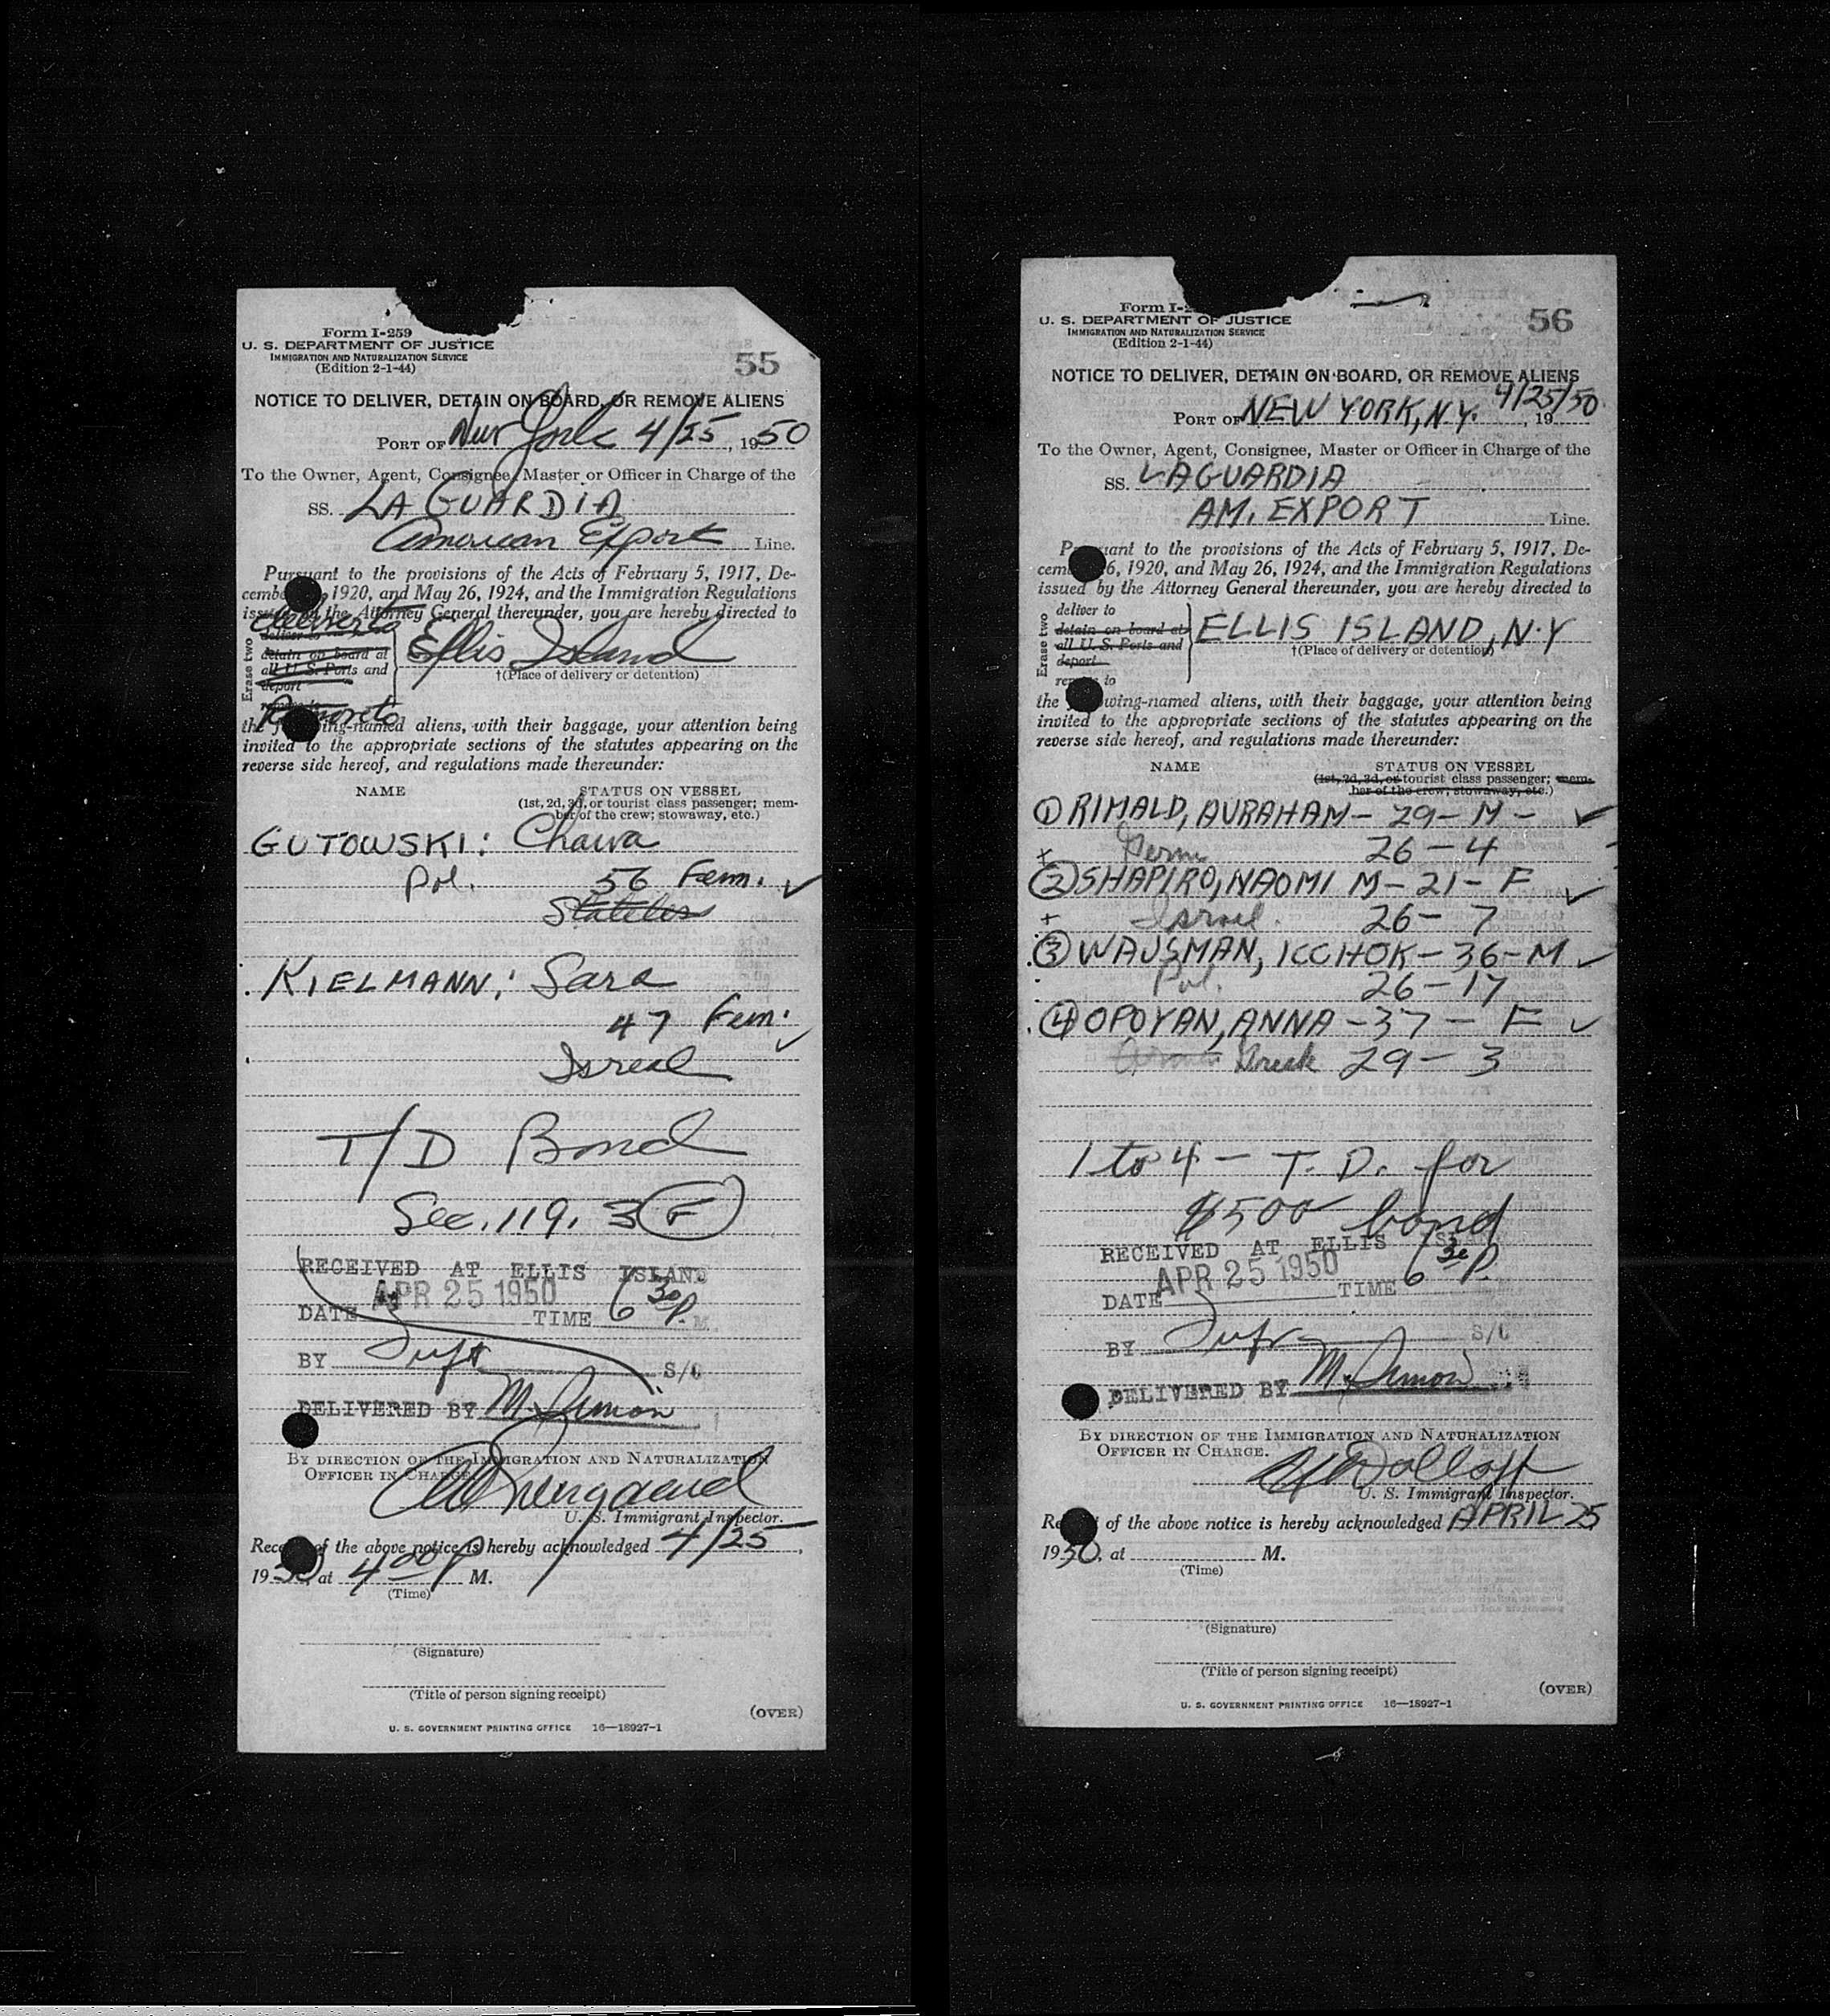 Form I-259
U. S. DEPARTMENT OF JUSTICE
IMMIGRATION AND NATURALIZATION SERVICE
(Edition 2-1-44)
55
NOTICE TO DELIVER, DETAIN ON BOARD, OR REMOVE ALIENS
PORT OF New York 4/25, 1950
To the Owner, Agent, Consignee, Master or Officer in Charge of the
SS. LA GUARDIA
American Export Line.
Pursuant to the provisions of the Acts of February 5, 1917, De-
cembe 1920, and May 26, 1924, and the Immigration Regulations
issued by the Attorney General thereunder, you are hereby directed to
deliver to
deliver to
detain on board at
all U. S. Ports and
deport
Erase two
Ellis Island
†(Place of delivery or detention)
Remove to
the following-named aliens, with their baggage, your attention being
invited to the appropriate sections of the statutes appearing on the
reverse side hereof, and regulations made thereunder:
NAME STATUS ON VESSEL
(1st, 2d, 3d, or tourist class passenger; mem-
ber of the crew; stowaway, etc.)
GUTOWSKI: Chawa
Pol. 56 Fem. ✓
Stateless
KIELMANN: Sara
47 Fem. ✓
Isreal
T/D Bond
Sec. 119. 3 (F)
RECEIVED AT ELLIS ISLAND
DATE APR 25 1950 TIME 6 30 P. M
BY S/C
DELIVERED BY M. Simon
BY DIRECTION OF THE IMMIGRATION AND NATURALIZATION
OFFICER IN CHARGE.
U. S. Immigrant Inspector.
Receipt of the above notice is hereby acknowledged 4/25,
1950, at 4 00 P M.
(Time)
(Signature)
(Title of person signing receipt)
(OVER)
U. S. GOVERNMENT PRINTING OFFICE 16—18927-1
Form I-2
U. S. DEPARTMENT OF JUSTICE
IMMIGRATION AND NATURALIZATION SERVICE
(Edition 2-1-44)
56
NOTICE TO DELIVER, DETAIN ON BOARD, OR REMOVE ALIENS
PORT OF NEW YORK, N.Y. 4/25/50, 19
To the Owner, Agent, Consignee, Master or Officer in Charge of the
SS. LAGUARDIA
AM. EXPORT Line.
Pursuant to the provisions of the Acts of February 5, 1917, De-
cem 6, 1920, and May 26, 1924, and the Immigration Regulations
issued by the Attorney General thereunder, you are hereby directed to
deliver to
detain on board at
all U. S. Ports and
deport
remove to
Erase two
ELLIS ISLAND, N.Y
†(Place of delivery or detention)
the following-named aliens, with their baggage, your attention being
invited to the appropriate sections of the statutes appearing on the
reverse side hereof, and regulations made thereunder:
NAME STATUS ON VESSEL
(1st, 2d, 3d, or tourist class passenger; mem-
ber of the crew; stowaway, etc.)
① RIMALD, AVRAHAM - 29 - M - ✓
+ Germ 26 - 4
② SHAPIRO, NAOMI M - 21 - F ✓
+ Israel. 26 - 7
③ WAJSMAN, ICCHOK - 36 - M ✓
Pol. 26 - 17
④ OPOYAN, ANNA - 37 - F ✓
Greek 29 - 3
1 to 4 - T. D. for
$500 bond
RECEIVED AT ELLIS ISL
DATE APR 25 1950 TIME 6 30 P.
BY S/C
DELIVERED BY M. Simon
BY DIRECTION OF THE IMMIGRATION AND NATURALIZATION
OFFICER IN CHARGE.
U. S. Immigrant Inspector.
Receipt of the above notice is hereby acknowledged APRIL 25
1950, at M.
(Time)
(Signature)
(Title of person signing receipt)
(OVER)
U. S. GOVERNMENT PRINTING OFFICE 16—18927-1